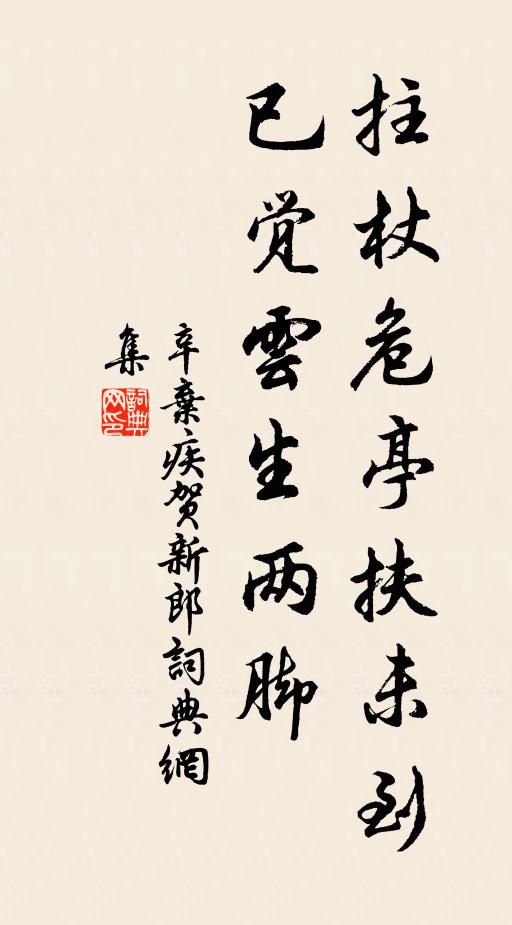 拄杖危亭扶未到
已觉雲生两脚
辛棄疾贺新郎詞典網
集
詞典网印